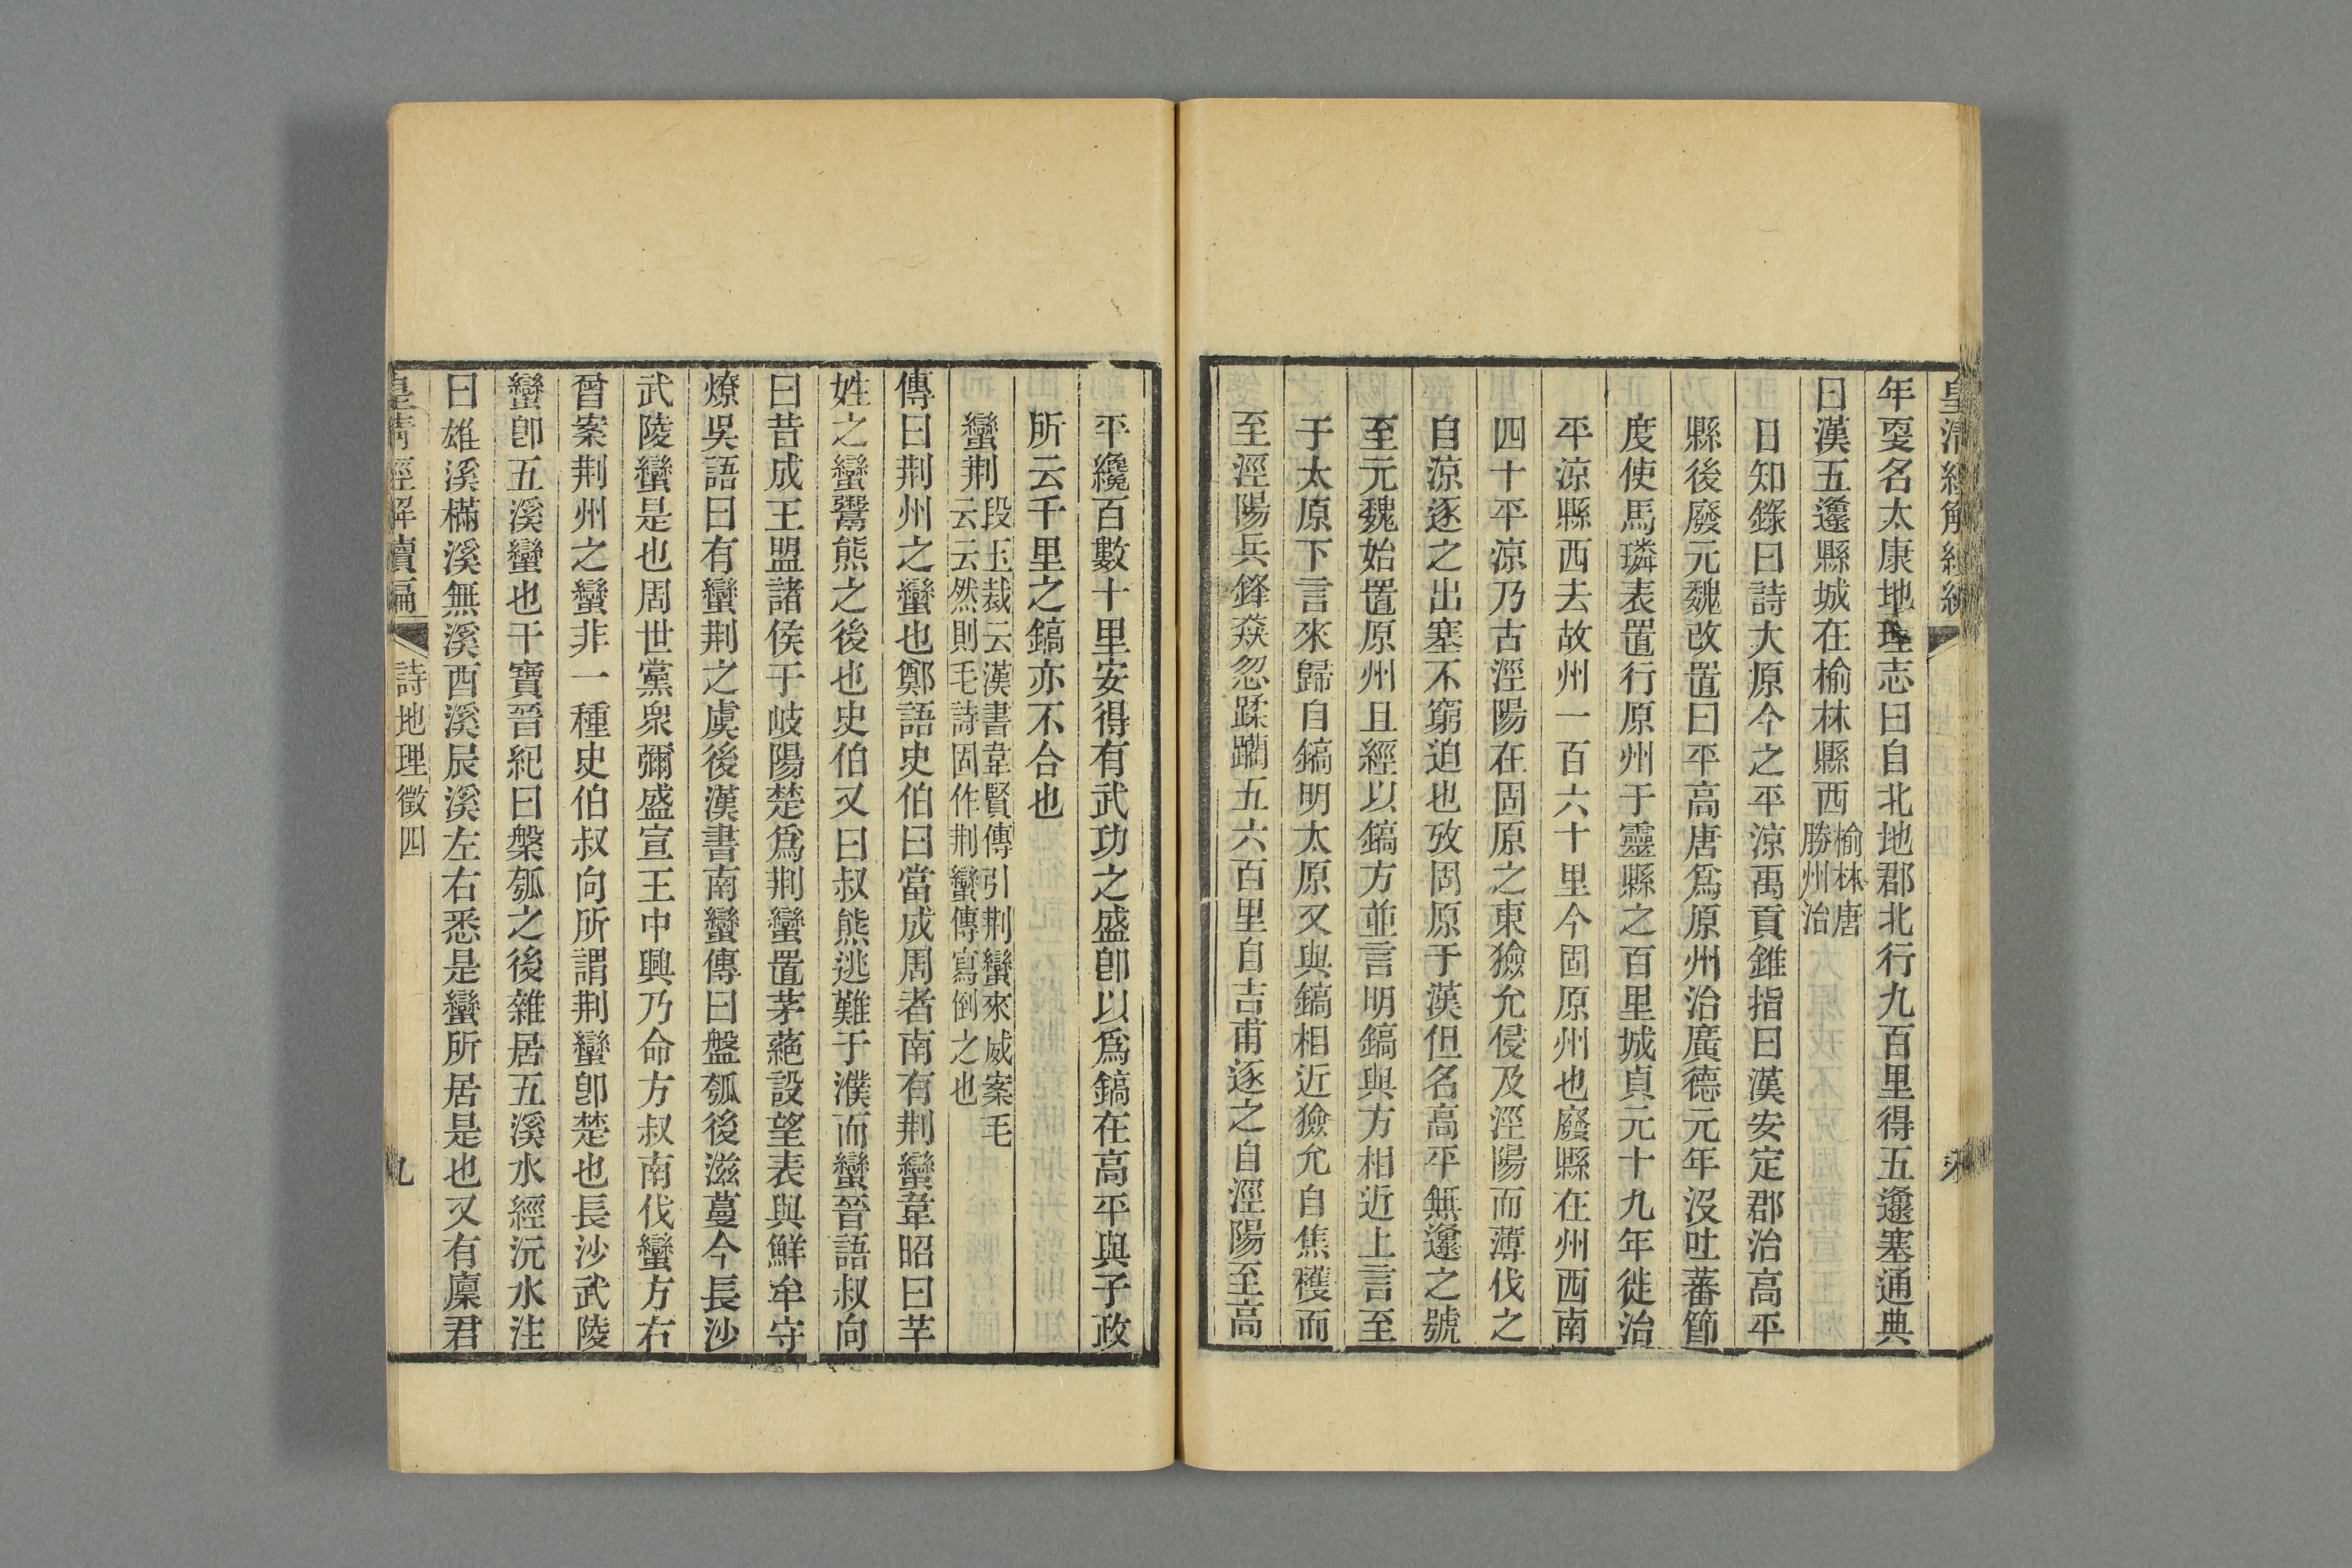 年耍名太康地理志曰自北地郡北行九百里得五邍塞通典
曰漢五邍縣城在榆林縣西榆林唐勝州治
日知錄曰詩大原今之平涼禹貢錐指曰漢安定郡治高平
縣後廢元魏改置曰平高唐爲原州治廣德元年沒吐蕃節
度使馬璘表置行原州于靈縣之百里城貞元十九年徙治
平涼縣西去故州一百六十里今固原州也廢縣在州西南
四十平涼乃古涇陽在固原之東獫允侵及涇陽而薄伐之
自涼逐之出塞不窮迫也攷周原于漢但名高平無邍之號
至元魏始置原州且經以鎬方並言明鎬與方相近上言至
于太原下言來歸自鎬明太原又與鎬相近獫允自焦穫而
至涇陽兵鋒猋忽蹂躪五六百里自吉甫逐之自涇陽至高
平纔百數十里安得有武功之盛卽以爲鎬在高平與子政
所云千里之鎬亦不合也
蠻荆段玉裁云漢書韋賢傳引荆蠻來威案毛云云然則毛詩固作荆蠻傳寫倒之也
傳曰荆州之蠻也鄭語史伯曰當成周者南有荆蠻韋昭曰芉
姓之蠻鬻熊之後也史伯又曰叔熊逃難于濮而蠻晉語叔向
曰昔成王盟諸侯于岐陽楚爲荆蠻置茅蕝設望表與鮮牟守
燎吳語曰有蠻荆之虞後漢書南蠻傳曰盤瓠後滋蔓今長沙
武陵蠻是也周世黨衆彌盛宣王中興乃命方叔南伐蠻方右
曾案荆州之蠻非一種史伯叔向所謂荆蠻卽楚也長沙武陵
蠻卽五溪蠻也干寶晉紀曰槃瓠之後雜居五溪水經沅水注
曰雄溪樠溪無溪酉溪辰溪左右悉是蠻所居是也又有廩君
皇清經解續編 詩地理徵四 九